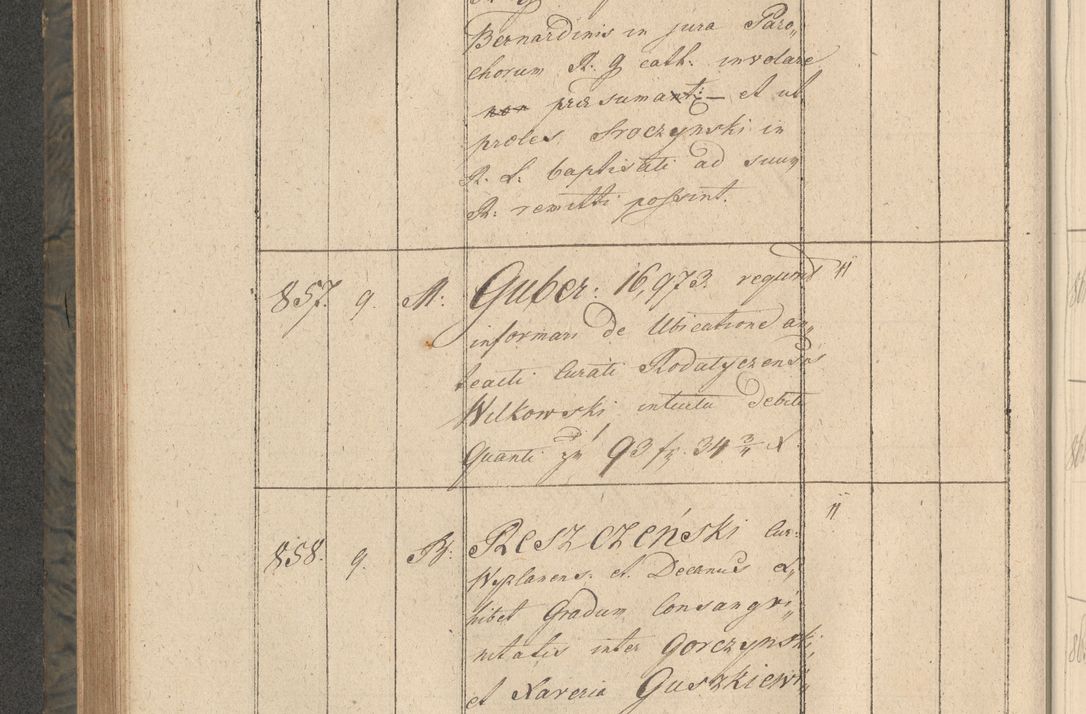 Bernardinis in jura Paro„
chorum R. g cath: involare
non præsumant: — et ut
proles Sroczynski in
R. L. baptisati ad suum
R. remitti possint.
857. 9. M: Guber: 16,973. requirit "
informari de Ubicatione an„
teacti Curati Rodatyczensis
Wilkowski intuitu debiti
Quanti 93 fr. 34 3/4 x
858. 9. B. Reszczeński Cur. "
Wyplanens. et Decanus Ex„
hibet Gradum Consangvi„
nitatis inter Gorczynski
et Xaveria Guszkiewi„